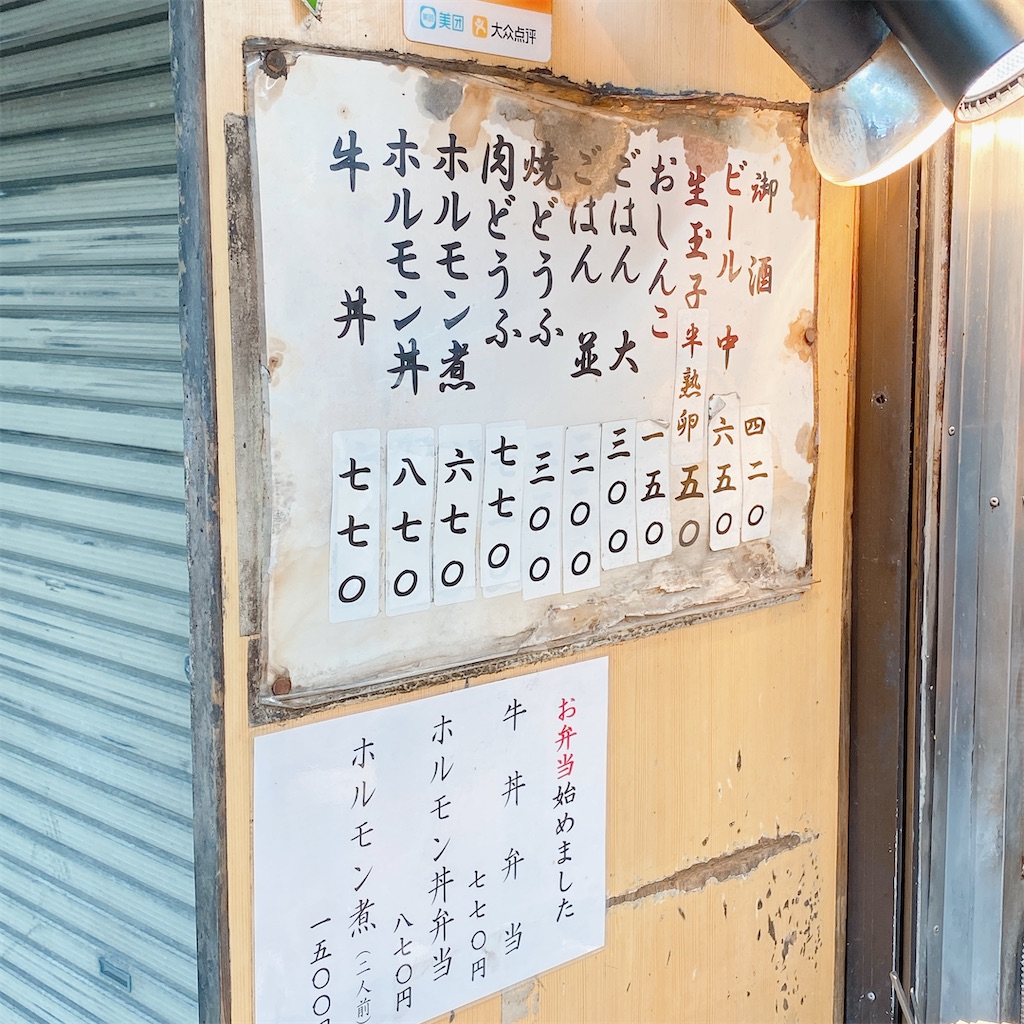 美团 大众点评
御酒 四二〇
ビール 中 六五〇
生玉子 半熟卵 五〇
おしんこ 一五〇
ごはん 大 三〇〇
ごはん 並 二〇〇
焼どうふ 三〇〇
肉どうふ 七七〇
ホルモン煮 六七〇
ホルモン丼 八七〇
牛丼 七七〇
お弁当始めました
牛丼弁当
七七〇円
ホルモン丼弁当
八七〇円
ホルモン煮(二人前)
一五〇〇円